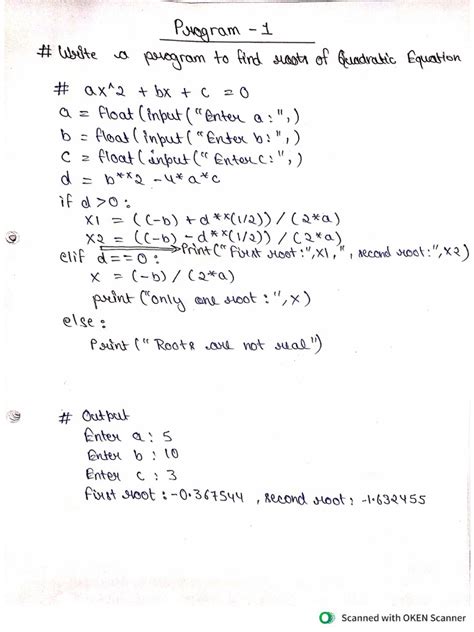 Program - 1
# Write a program to find roots of Quadratic Equation
# ax^2 + bx + c = 0
a = float(input("Enter a:",)
b = float(input("Enter b:",)
c = float(input("Enter c:",)
d = b**2 - 4*a*c
if d >0:
x1 = ((-b) + d**(1/2)) / (2*a)
x2 = ((-b) - d**(1/2)) / (2*a)
print("First root:",x1,", second root:",x2)
elif d==0:
x = (-b) / (2*a)
print ("only one root:",x)
else:
Print(" Roots are not real")
# Output
Enter a: 5
Enter b: 10
Enter c: 3
First root: -0.367544 , second root: -1.632455
Scanned with OKEN Scanner